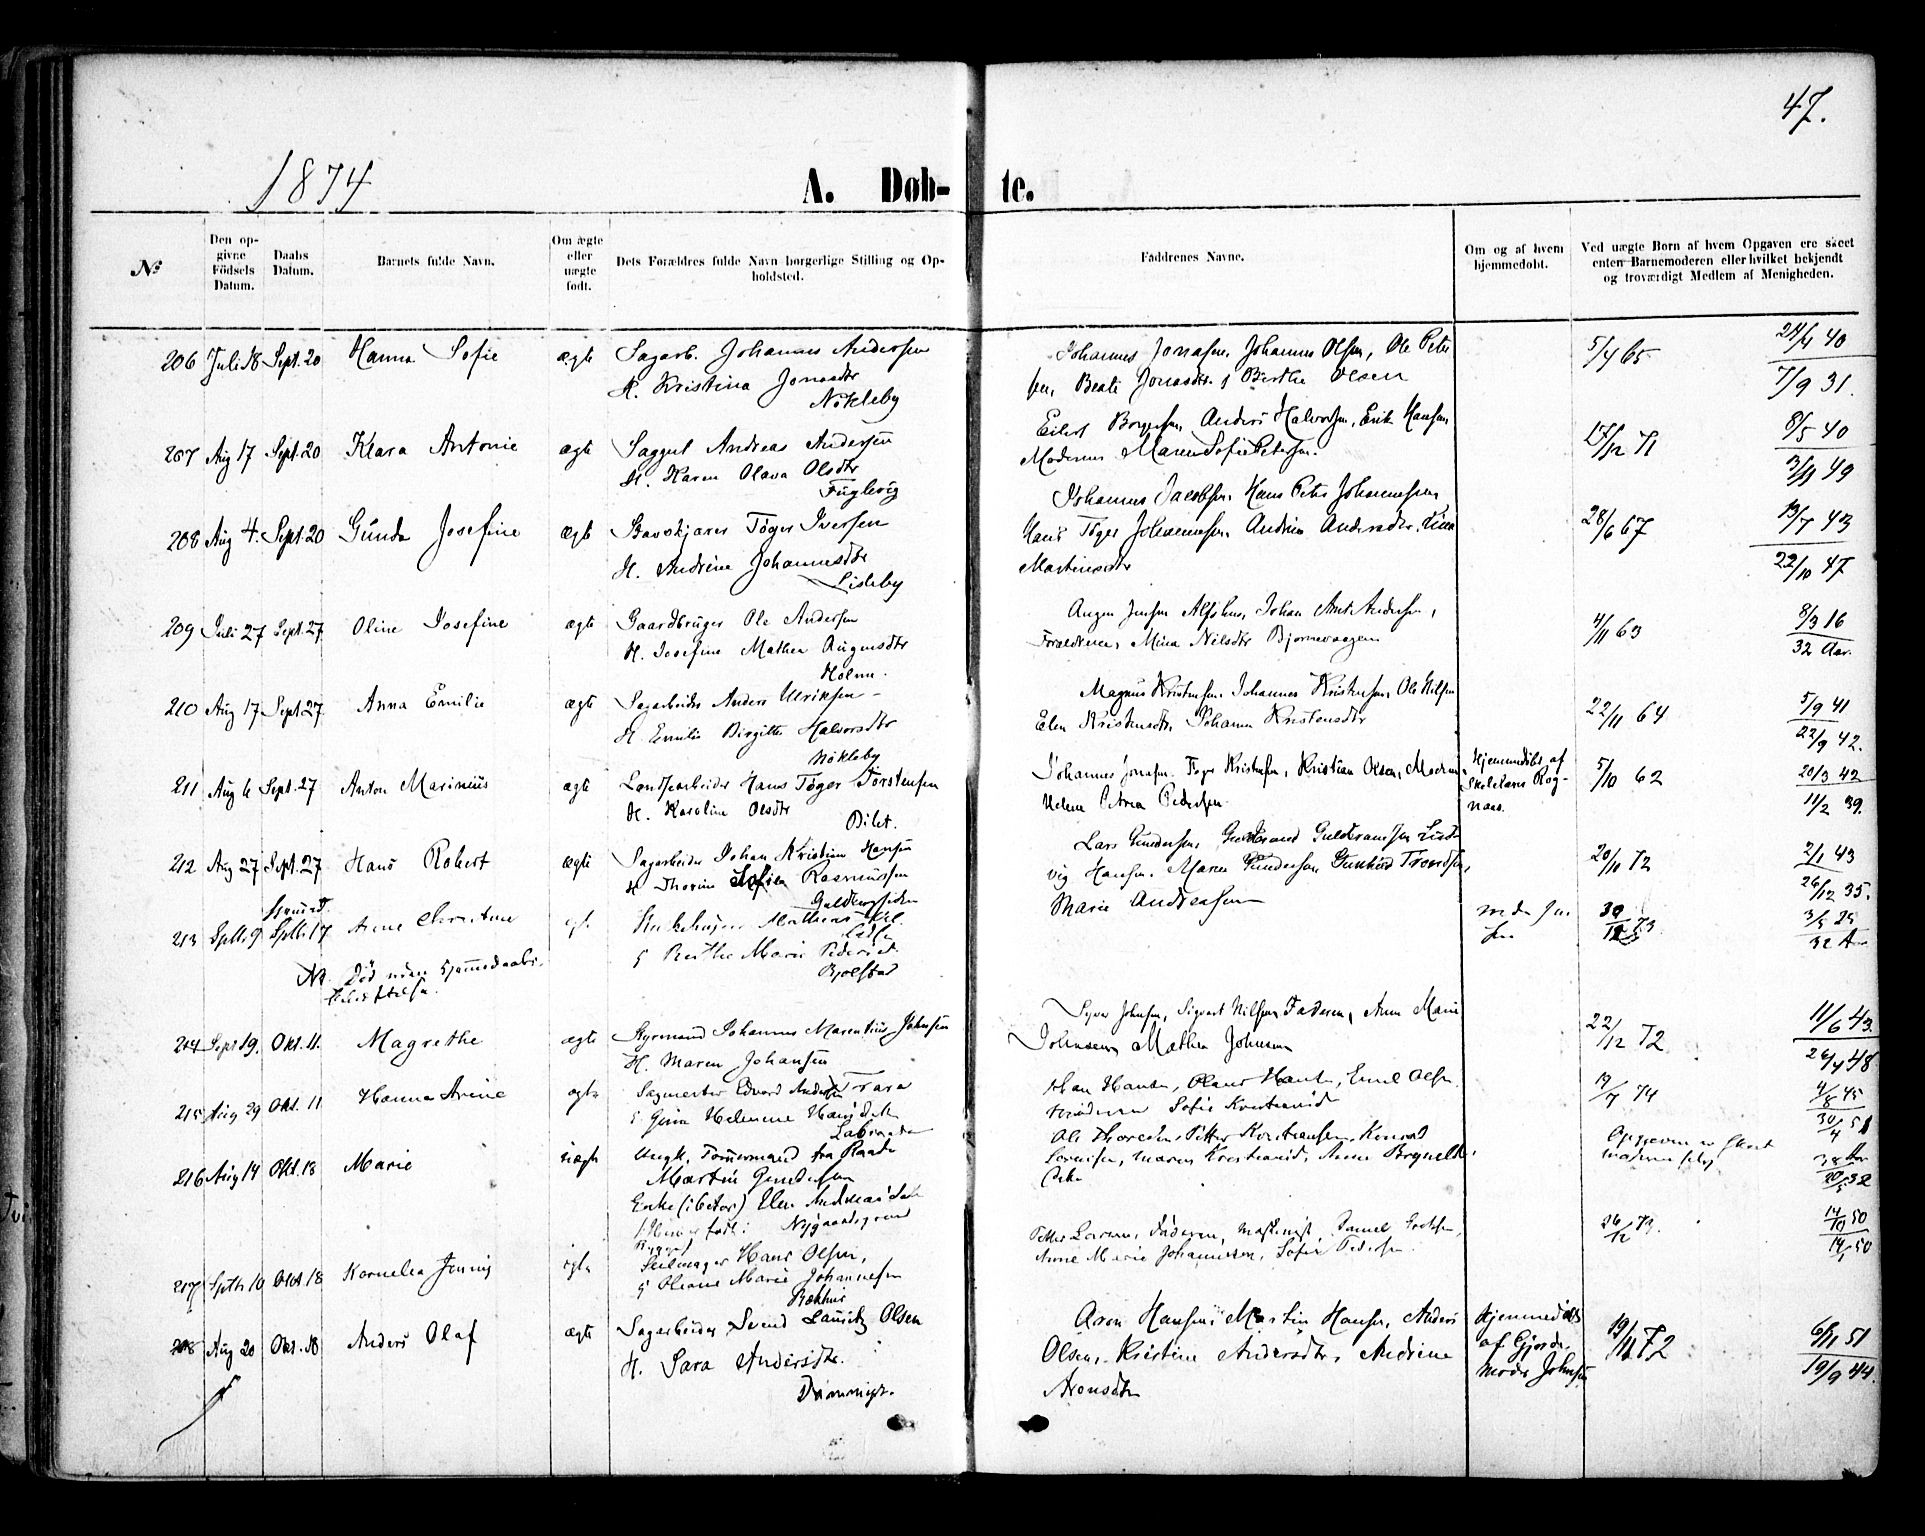 47.
1874
A. Døb- te.
No
Den op-
givne
Födsels
Datum.
Daabs
Datum.
Barnets fulde Navn.
Om ægte
eller
uægte
født.
Dets Forældres fulde Navn borgerlige Stilling og Op-
holdsted.
Faddrenes Navne.
Om og af hvem
hjemmedøbt.
Ved uægte Børn af hvem Opgaven ere skeet
enten Barnemoderen eller hvilket bekjendt
og troværdigt Medlem af Menigheden.
206 Juli 18 Sept. 20 Hanna Sofie ægte Sagarb. Johannes Andersen
H. Kristina Jonasdtr
Nökleby
Johannes Jonasen, Johannes Olsen, Ole Peter
sen, Beate Jonasdtr. & Berthe Olsen
5/4 65
24/4 40
7/9 31.
207 Aug 17 Sept. 20 Klara Antonie ægte Saggut Andreas Andersen
H. Karen Olava Olsdtr
Fuglevig
Eilert Borgersen, Anders Halvorsen, Erik Hansen
Moderen Maren Sofie Petersen.
17/12 71
8/5 40
3/11 49
208 Aug 4. Sept. 20 Gunda Josefine ægte Töger Iversen
H. Andrine Johannesdtr
Lisleby
Johannes Jacobsen, Hans Peter Johannessen
Hans Töger Johannessen, Andrine Andersdtr, Lina
Martinsdtr
28/6 67
13/7 43
22/10 47
209 Juli 27 Sept. 27 Oline Josefine ægte Gaardbruger Ole Andersen
H. Josefine Mathea Augustdtr
Holm.
Johan Ant. Andersen,
Forældrene, Mina Nilsdtr Bjornevaagen
4/11 63
8/3 16
32 Aar.
210 Aug 17 Sept. 27 Anna Emilie ægte Sagarbeider Anders Ulriksen
H. Emilie Birgitte Halvorsdtr
Nökleby
Magnus Kristensen, Johannes Kristensen, Ole Nilsen
Elen Kristensdtr, Johanna Kristensdtr
22/11 64
5/9 41
22/9 42.
211 Aug 6 Sept. 27 Anton Marinius ægte Hans Töger Torstensen
H. Karoline Olsdtr
Bilet.
Johannes Jonasen, Töger Kristensen, Kristian Olsen, Moderen
Helene Petrea Pedersen
Hjemmedöbt af
Skolelærer Rog-
naas.
5/10 62
20/3 42
11/2 39.
212 Aug 27 Sept. 27 Hans Robert ægte Sagarbeider Johan Kristian Hansen
H. Thorine Sofia Rasmussen
Lars Gundersen, Guldbrand Guldbrandsen, Lud-
vig Hansen, Maren Gundersen, Gunhild Trondsen,
Marie Andreasen
20/11 72
2/1 43
26/12 35.
213 Sptb. 9 Sptb. 17 Anne Christine Mathias
Berthe Marie Pedersd
Bjølstad
NB. Död uden Hjemmedaabs-
30/12 73
3/5 25
32 Aar
214 Sept 19. Okt. 11. Magrethe ægte Styrmand Johannes Marentius Johnsen
H. Maren Johansen
Trara
Syver Johnsen, Sigvart Nilsen, Faderen, Anne Marie
Johnsen, Mathea Johnsen
22/12 72
11/6 43.
26/4 48
215 Aug 29 Okt. 11 Hanna Arine ægte Sagmester Edvard Andersen
Gina Helenne Hansdatter
Hans Hansen, Olaus Hansen, Emil Olsen
Moderen Sofie Kristiansd
19/7 74
4/8 45
30/4 51
216 Aug 14 Okt. 18 Marie uægte Ungk. Tömmermand fra Raade
Martin Gundersen
Enke (i Beter) Elen Andreasdatter
Nygaardsgrund
Ole Thoresen, Petter Kristiansen, Konrad
Lorentsen, Maren Kristiansd, Anne Brynild
Opgaven er skeet
moderen selv
38 Aar
20/5 32
217 Sptb 10 Okt. 18 Kornelia Jenny ægte Seilmager Hans Olsen,
Oleane Marie Johannesen
Bakhus
Petter Larsen, Faderen, Maskinist, Daniel
Anne Marie Johannesen, Sofie Pedersen
26/12 73.
14/10 50
14/1 50
218 Aug 20 Okt. 18 Anders Olaf ægte Sagarbeider Svend Lauritz Olsen
H. Sara Andersdtr.
Aron Hansen, Martin Hansen, Anders
Olsen, Kristine Andersdtr, Andrine
Aronsdtr
Hjemmedöbt
af Gjorde-
moder Johnsen
19/11 72
6/11 51
19/9 44.